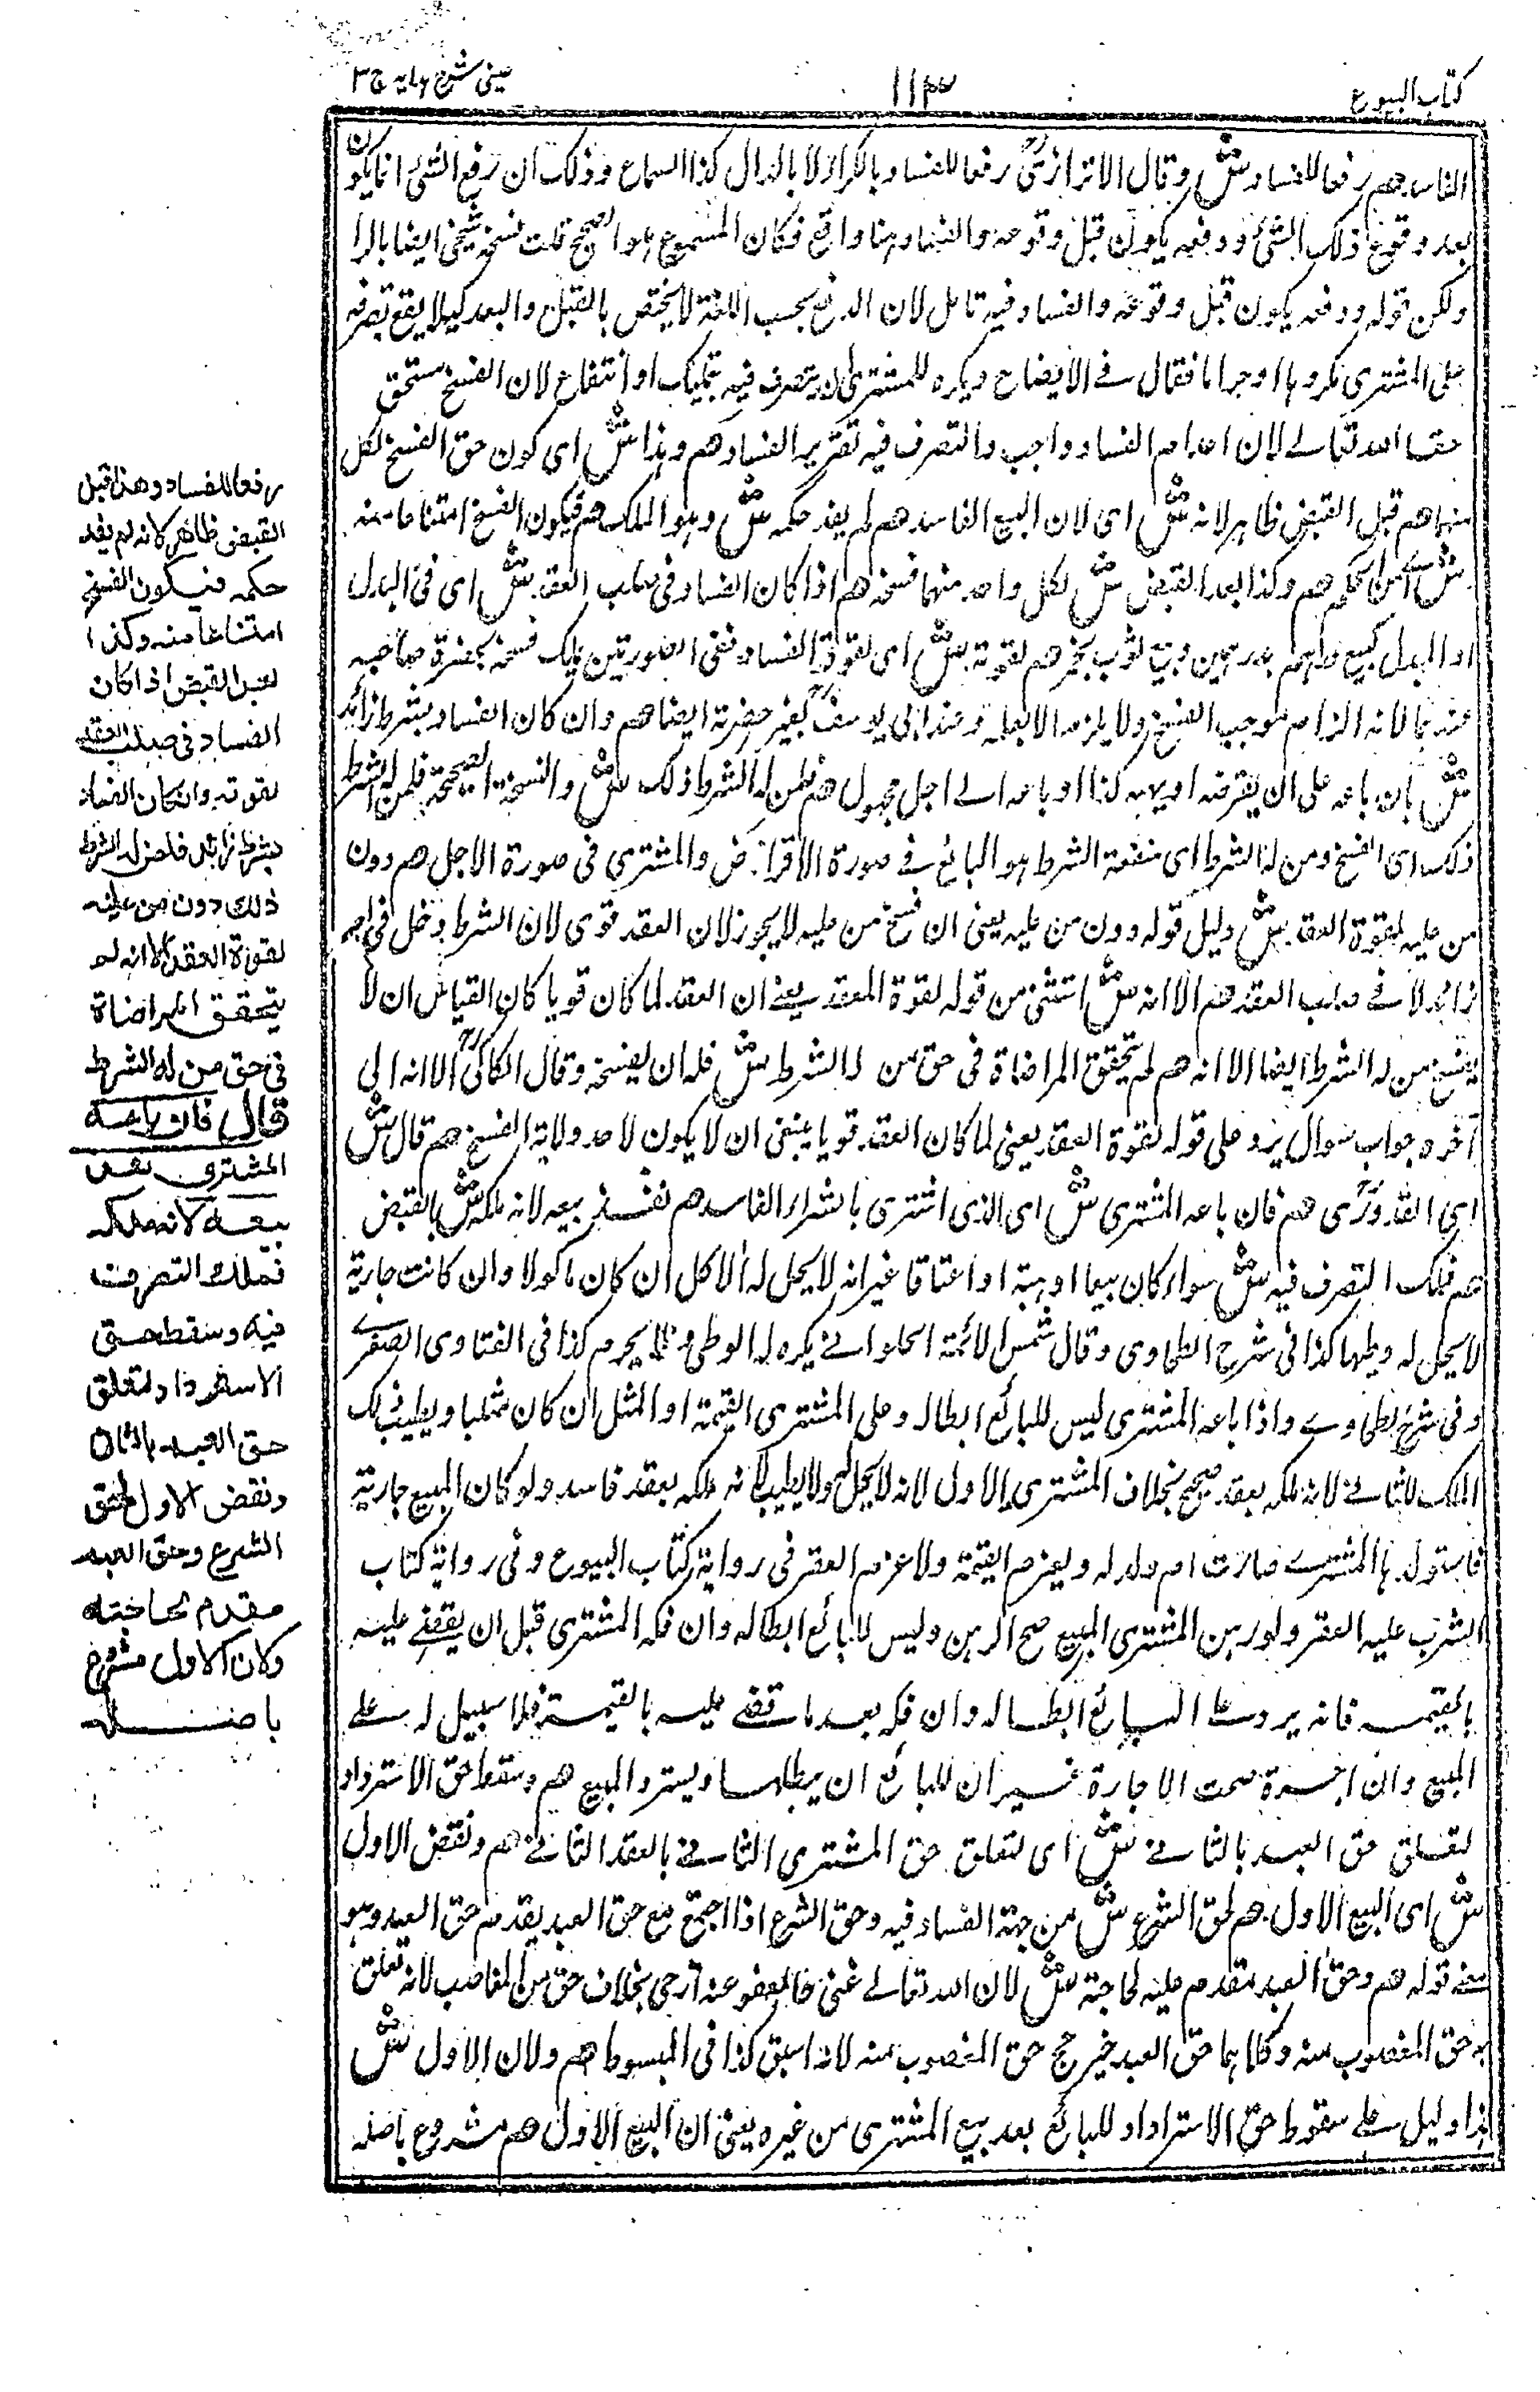 كتاب البيوع
١١٣
عينى شرح هدايه ج ٣
الفاسد هم رفعا للفساد ش وقال الاترازى رفعا للفساد بالراء لا بالدال كذا السماع وذلك ان رفع الشئ انما يكون
بعد وقوع ذلك الشئ ودفعه يكون قبل وقوعه والفساد هنا واقع فكان المسموع هو الصحيح قلت نسخة شيخى ايضا بالرا
ولكن قوله ودفعه يكون قبل وقوعه والفساد فيه تامل لان الدفع بحسب اللغة لا يختص بالقبل والبعد كيلا يقع تصرفه
على المشترى مكروها او حراما فقال فى الايضاح ويكره للمشترى ان يتصرف فيه بتمليك او انتفاع لان الفسخ مستحق
حقا لله تعالى لان اعدام الفساد واجب والتصرف فيه تقرير الفساد هم وهذا ش اى كون حق الفسخ لكل
منهما هم قبل القبض ظاهر لانه ش اى لان البيع الفاسد هم لم يفد حكمه ش وهو الملك هم فيكون الفسخ امتناعا منه
ش اى من الحكم هم وكذا بعد القبض ش لكل واحد منهما فسخه هم اذا كان الفساد فى صلب العقد ش اى فى البدل
او المبدل كبيع درهم بدرهمين وبيع ثوب بخمر هم لقوته ش اى لقوة الفساد ففى الصورتين يملك فسخه بحضرة صاحبه
عندهما لانه الزام موجب الفسخ ولا يلزمه الا بعلمه وعند ابى يوسف بغير حضرته ايضا هم وان كان الفساد بشرط زائد
ش بان باعه على ان يقرضه او يهبه كذا او باعه الى اجل مجهول هم فلمن له الشرط ذلك ش والنسخة الصحيحة فلمن له الشرط
ذلك اى الفسخ ومن له الشرط اى منفعة الشرط هو البائع فى صورة الاقراض والمشترى فى صورة الاجل هم دون
من عليه لقوة العقد ش دليل قوله دون من عليه يعنى ان فسخ من عليه لا يجوز لان العقد قوى لان الشرط دخل فى امر
زائد لا فى صلب العقد هم الا انه ش استثنى من قوله لقوة العقد يعنى ان العقد لما كان قويا كان القياس ان لا
يفسخ من له الشرط ايضا الا انه هم لم يتحقق المراضاة فى حق من له الشرط ش فله ان يفسخه وقال الكاكى الا انه الى
آخره جواب سوال يرد على قوله لقوة العقد يعنى لما كان العقد قويا ينبغى ان لا يكون لاحد ولاية الفسخ هم قال ش
اى القدورى هم فان باعه المشترى ش اى الذى اشترى بالشراء الفاسد هم نفذ بيعه لانه ملكه ش بالقبض
هم فملك التصرف فيه ش سواء كان بيعا او هبة او اعتاقا غير انه لا يحل له الاكل ان كان ماكولا وان كانت جارية
لا يحل له وطيها كذا فى شرح الطحاوى وقال شمس الائمة الحلوانى يكره له الوطى ولا يحرم كذا فى الفتاوى الصغرى
وفى شرح الطحاوى واذا باعه المشترى ليس للبائع ابطاله وعلى المشترى القيمة او المثل ان كان مثليا ويطيب ذلك
الملك للثانى لانه ملكه بعقد صحيح بخلاف المشترى الاول لانه لا يحل له ولا يطيب لانه ملكه بعقد فاسد ولو كان المبيع جارية
فاستولدها المشترى صارت ام ولد له ويغرم القيمة ولا غرم العقر فى رواية كتاب البيوع وفى رواية كتاب
الشرب عليه العقر ولو رهن المشترى المبيع صح الرهن وليس للبائع ابطاله وان فكه المشترى قبل ان يقضى عليه
بالقيمة فانه يرد على البائع ابطاله وان فكه بعد ما قضى عليه بالقيمة فلا سبيل له على
المبيع وان اجره صحت الاجارة غير ان للبائع ان يبطلها ويسترد المبيع هم وسقط حق الاسترداد
لتعلق حق العبد بالثانى ش اى لتعلق حق المشترى الثانى بالعقد الثانى هم ونقض الاول
ش اى البيع الاول هم لحق الشرع ش من جهة الفساد فيه وحق الشرع اذا اجتمع مع حق العبد يقدم حق العبد وهو
معنى قوله هم وحق العبد مقدم عليه لحاجته ش لان الله تعالى غنى فالعفو عنه ارجى بخلاف حق من الغاصب لانه تعلق
به حق المغصوب منه وكلاهما حق العبد فيرجح حق المغصوب منه لانه اسبق كذا فى المبسوط هم ولان الاول ش
هذا دليل على سقوط حق الاسترداد للبائع بعد بيع المشترى من غيره يعنى ان البيع الاول هم مشروع باصله
رفعا للفساد وهذا قبل
القبض ظاهر لانه لم يفد
حكمه فيكون الفسخ
امتناعا منه وكذا
بعد القبض اذا كان
الفساد فى صلب العقد
لقوته وان كان الفساد
بشرط زائد فلمن له الشرط
ذلك دون من عليه
لقوة العقد الا انه لم
يتحقق المراضاة
فى حق من له الشرط
قال فان باعه
المشترى نفذ
بيعه لانه ملكه
فملك التصرف
فيه وسقط حق
الاسترداد لتعلق
حق العبد بالثان
ونقض الاول لحق
الشرع وحق العبد
مقدم لحاجته
ولان الاول مشروع
باصله